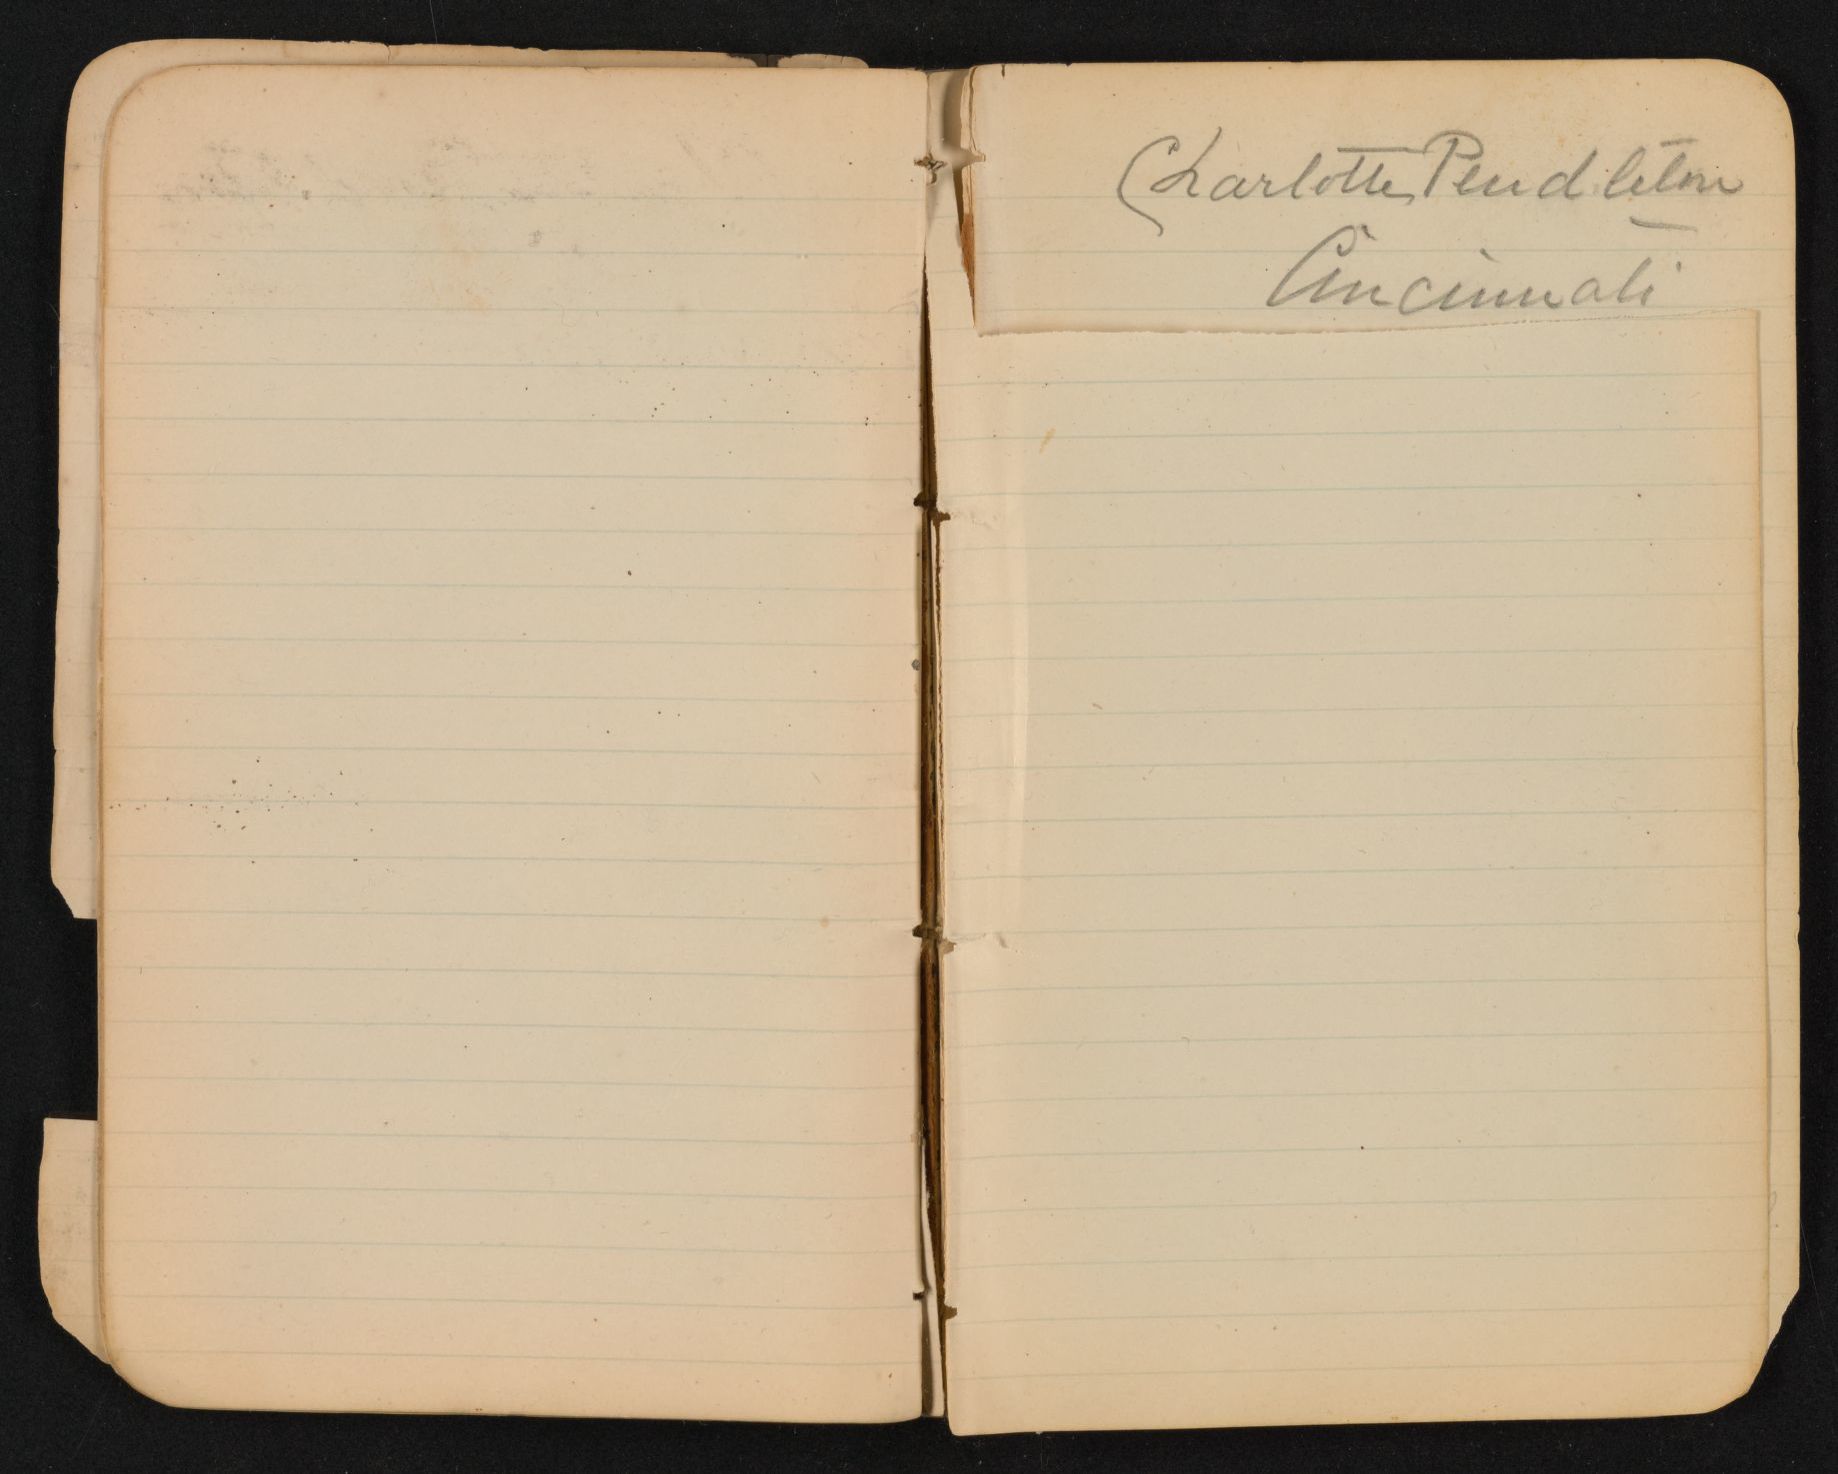 Charlotte Pendleton
Cincinnati